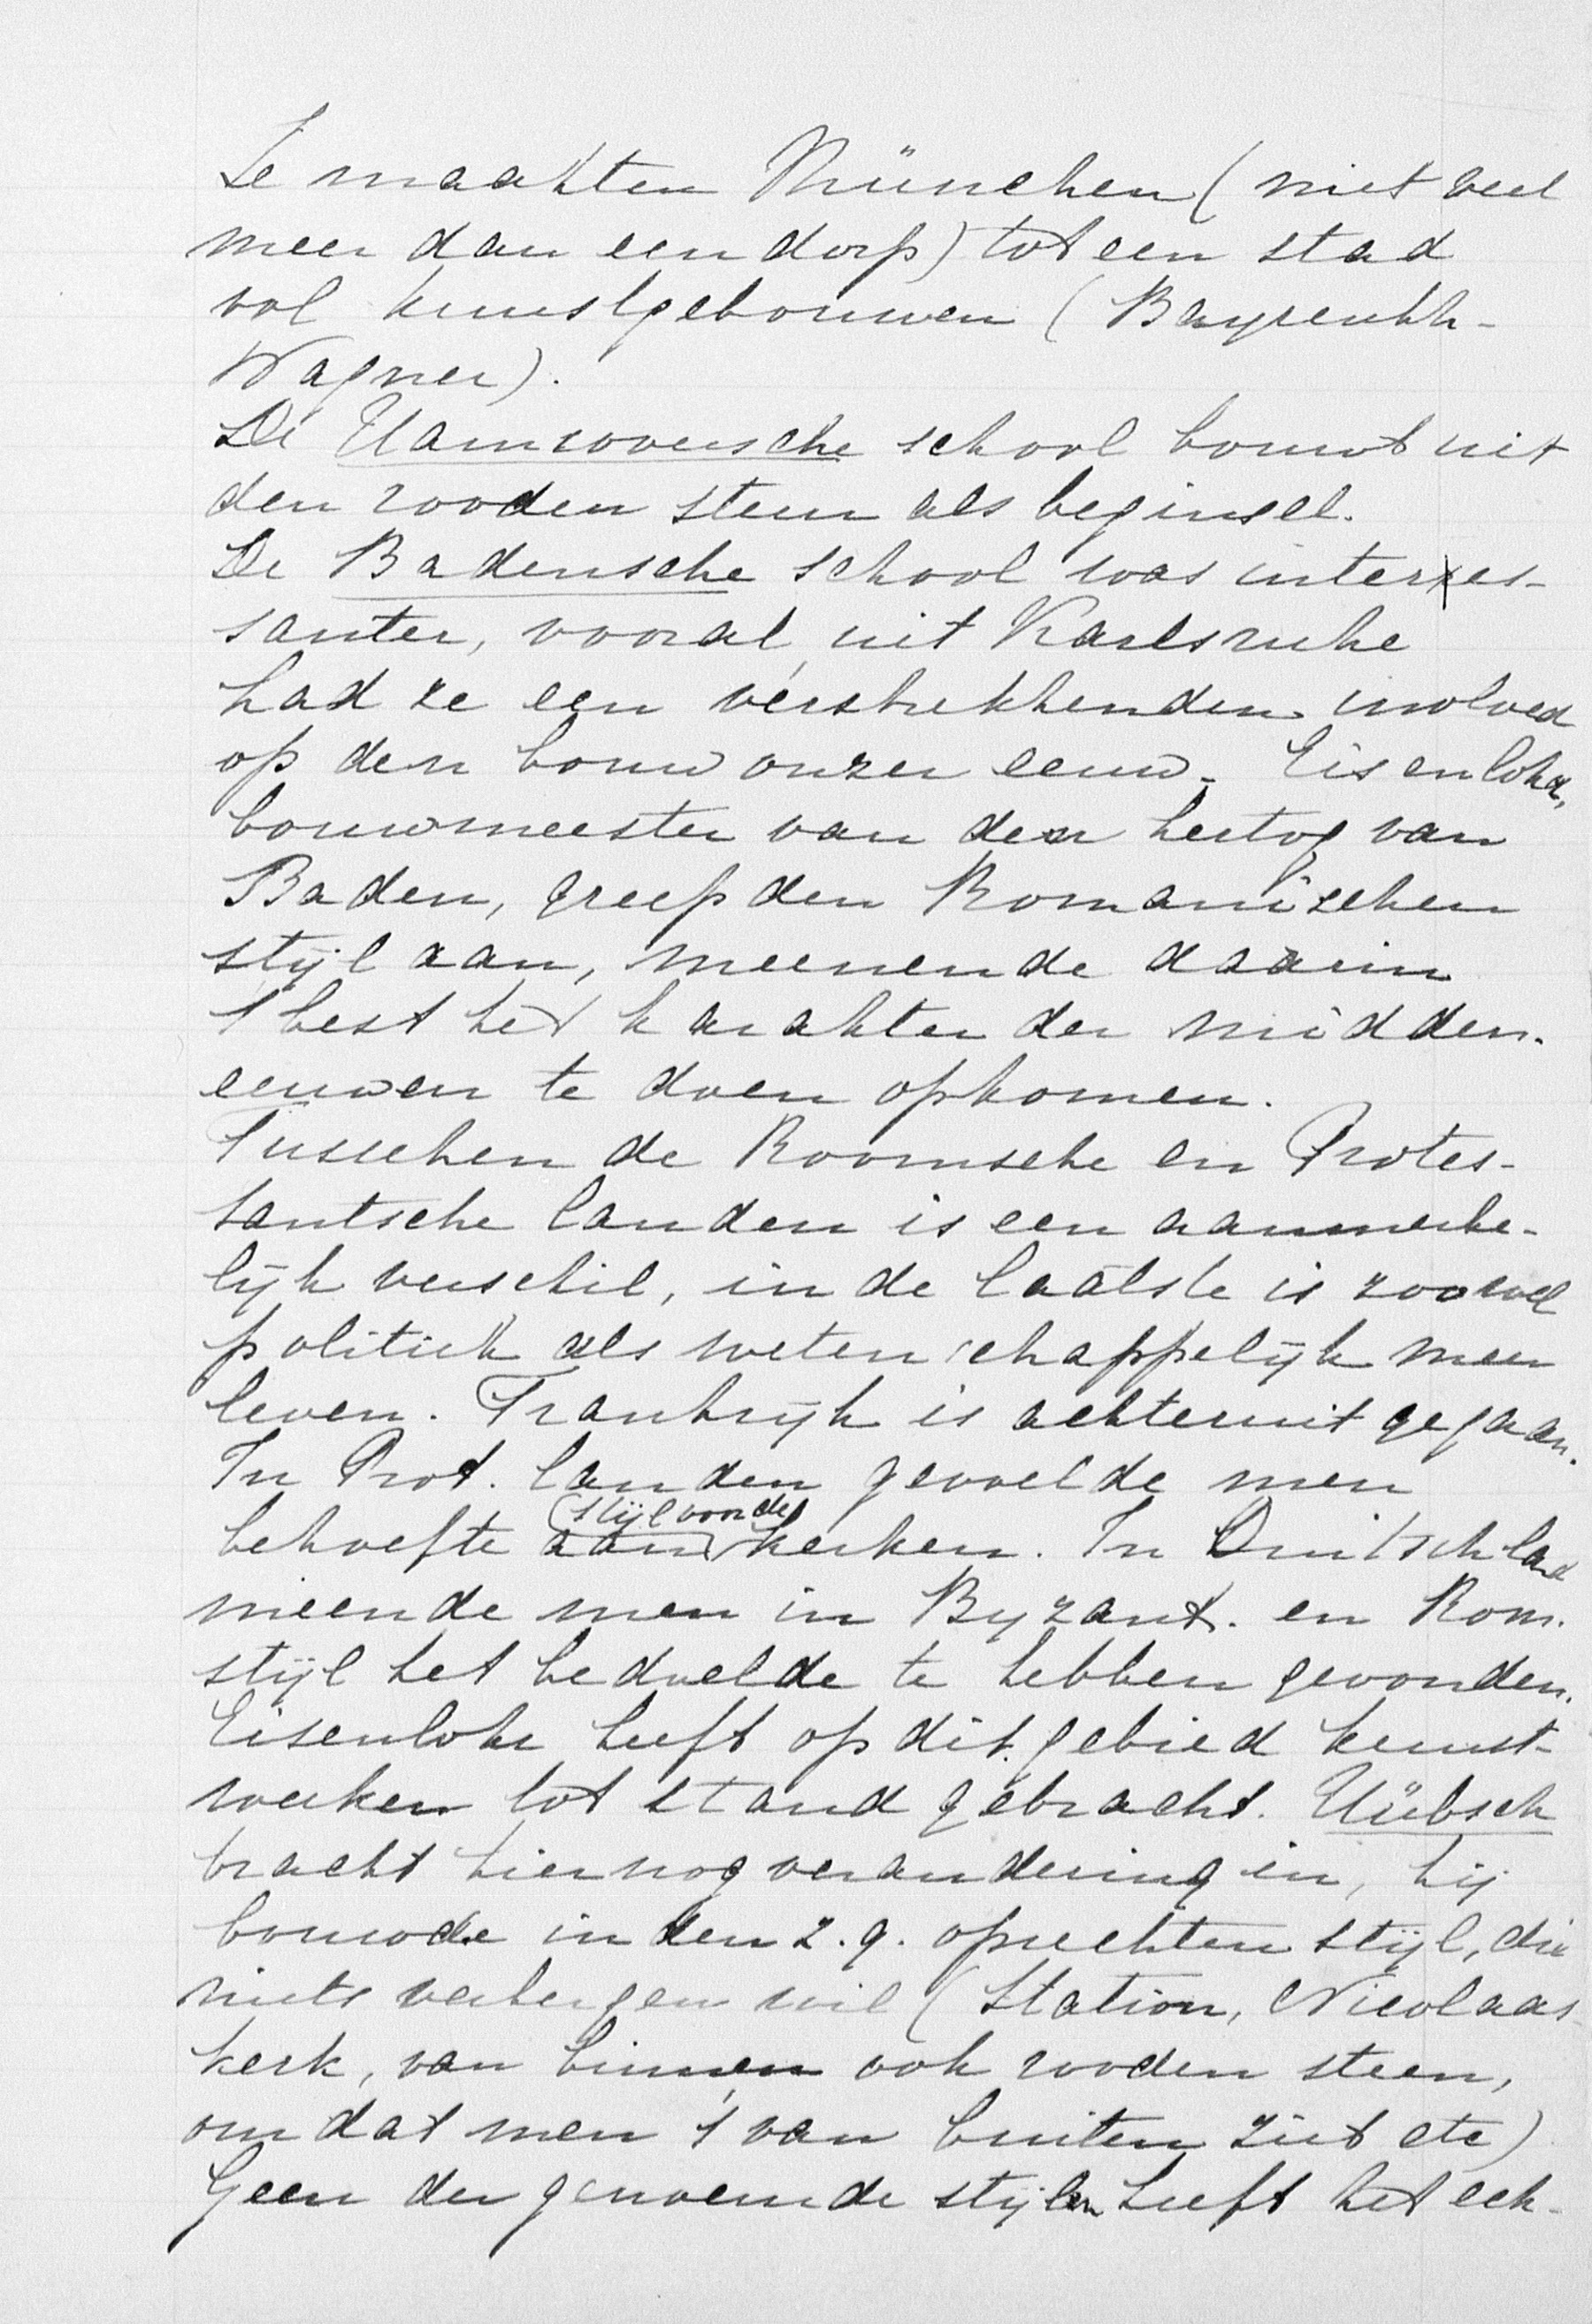 Ze maakten München (niet veel
meer dan een dorp) tot een stad
vol kunstgebouwen (Bayreuth-
Wagner).
De Hannoversche school bouwt uit
den rooden steen als beginsel.
De Badensche school was interes-
santer, vooral uit Karlsruhe
had ze een vérstrekkenden invloed
op den bouw onzer eeuw. Eisenlohr,
bouwmeester van den hertog van
Baden, greep den Romaanschen
stijl aan, meenende daarin
't best het karakter der midden-
eeuwen te doen opkomen.
Tusschen de Roomsche en Protes-
tantsche landen is een aanmerke-
lijk verschil, in de laatste is zoowel
politiek als wetenschappelijk meer
leven. Frankrijk is achteruit gegaan.
In Prot. landen gevoelde men
behoefte aan stijl voor de kerken. In Duitschland
meende men in Byzant. en Rom.
stijl het bedoelde te hebben gevonden.
Eisenlohr heeft op dit gebied kunst-
werken tot stand gebracht. Hübsch
bracht hier nog verandering in, hij
bouwde in den z.g. oprechten stijl, die
niets verbergen wil (Station, Nicolaas
kerk, van binnen ook rooden steen,
omdat men 't van buiten ziet etc)
Geen der genoemde stijlen heeft het ech-